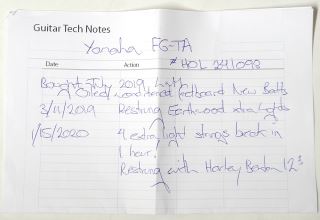 Guitar Tech Notes
Yamaha FG-TA
# HOL 241098
Date Action
Bought July 2019
Oiled/conditioned fretboard New Batts
3/11/2019 Restrung Earthwood xtra lights
1/15/2020 4 extra light strings broke in
1 hour.
Restrung with Harley Benton 12s